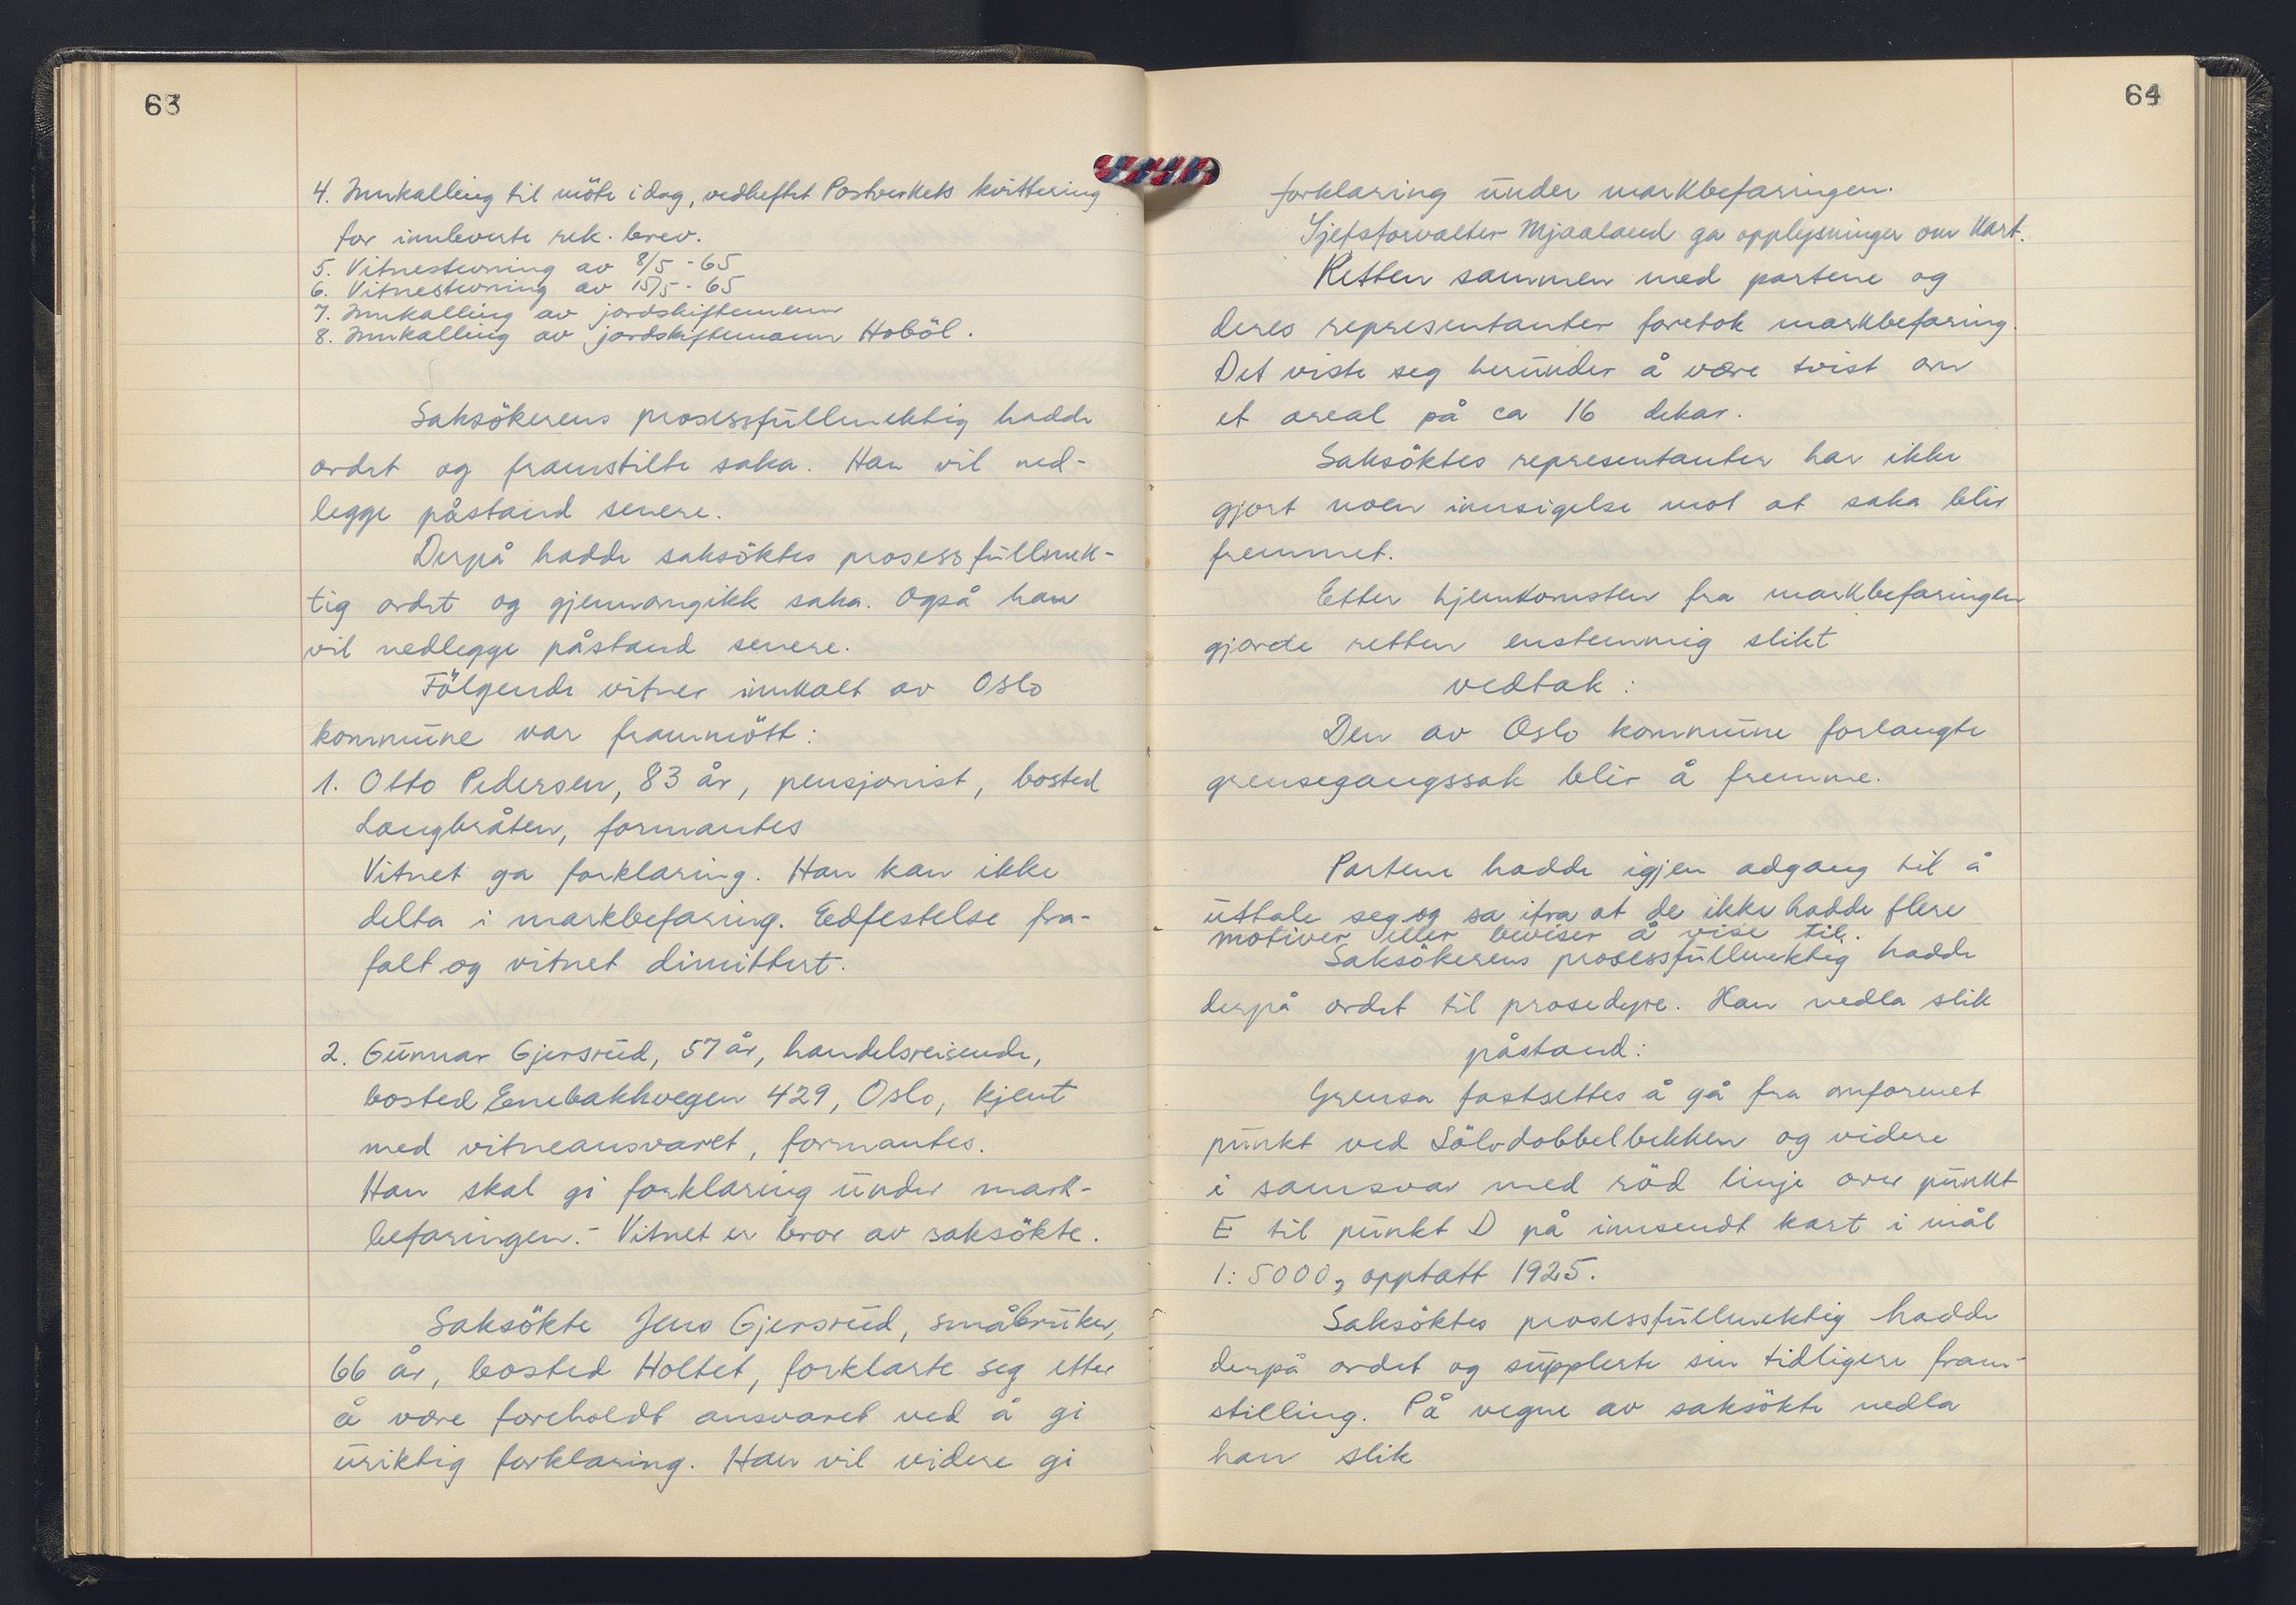 63
4. Innkalling til möte i dag, vedheftet Postverkets kvittering
for innleverte rek. brev.
5. Vitnestevning av 8/5 - 65
6. Vitnestevning av 15/5 - 65
7. Innkalling av jordskiftemenn
8. Innkalling av jordskiftemann Hoböl.
Saksökerens prosessfullmektig hadde
ordet og framstilte saka. Han vil ned-
legge påstand senere.
Derpå hadde saksöktes prosessfullmek-
tig ordet og gjennomgikk saka. Også han
vil nedlegge påstand senere.
Fölgende vitner innkalt av Oslo
kommune var frammött:
1. Otto Pedersen, 83 år, pensjonist, bosted
Langbråten, formantes
Vitnet ga forklaring. Han kan ikke
delta i markbefaring. Edfestelse fra-
falt og vitnet dimittert.
2. Gunnar Gjersrud, 57 år, handelsreisende,
bosted Enebakkvegen 429, Oslo, kjent
med vitneansvaret, formantes.
Han skal gi forklaring under mark-
befaringen. - Vitnet er bror av saksökte.
Saksökte Jens Gjersrud, småbruker,
66 år, bosted Holtet, forklarte seg etter
å være foreholdt ansvaret ved å gi
uriktig forklaring. Han vil videre gi
64
forklaring under markbefaringen.
Sjefsforvalter Mjaaland ga opplysninger om kart.
Retten sammen med partene og
deres representanter foretok markbefaring.
Det viste seg herunder å være tvist om
et areal på ca 16 dekar.
Saksöktes representanter har ikke
gjort noen innsigelse mot at saka blir
fremmet.
Etter hjemkomsten fra markbefaringen
gjorde retten enstemmig slikt
vedtak:
Den av Oslo kommune forlangte
grensegangssak blir å fremme.
Partene hadde igjen adgang til å
uttale seg og sa ifra at de ikke hadde flere
motiver eller beviser å vise til.
Saksökerens prosessfullmektig hadde
derpå ordet til prosedyre. Han nedla slik
påstand:
Grensa fastsettes å gå fra omforenet
punkt ved Sölvdobbelbekken og videre
i samsvar med röd linje over punkt
E til punkt D på innsendt kart i mål
1:5000, opptatt 1925.
Saksöktes prosessfullmektig hadde
derpå ordet og supplerte sin tidligere fram-
stilling. På vegne av saksökte nedla
han slik